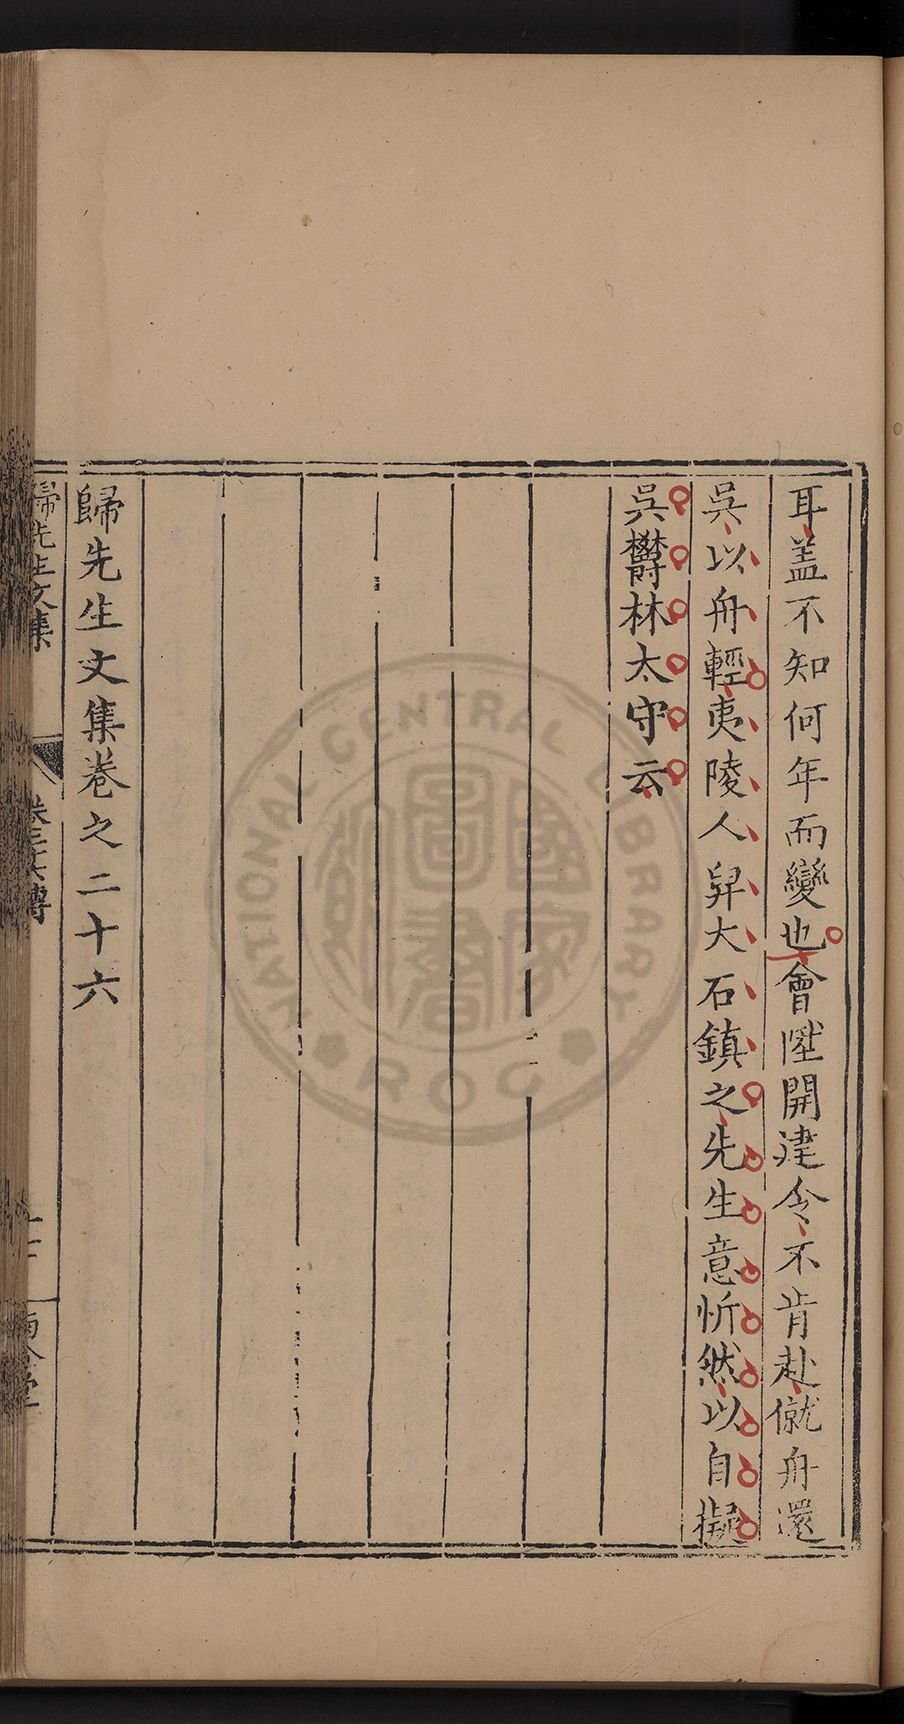 耳蓋不知何年而變也會陞開建令不肯赴僦舟還
吳以舟輕夷陵人舁大石鎮之先生意忻然以自擬
吳欝林太守云
歸先生文集卷之二十六
歸先生文集
NATIONAL CENTRAL LIBRARY
ROC